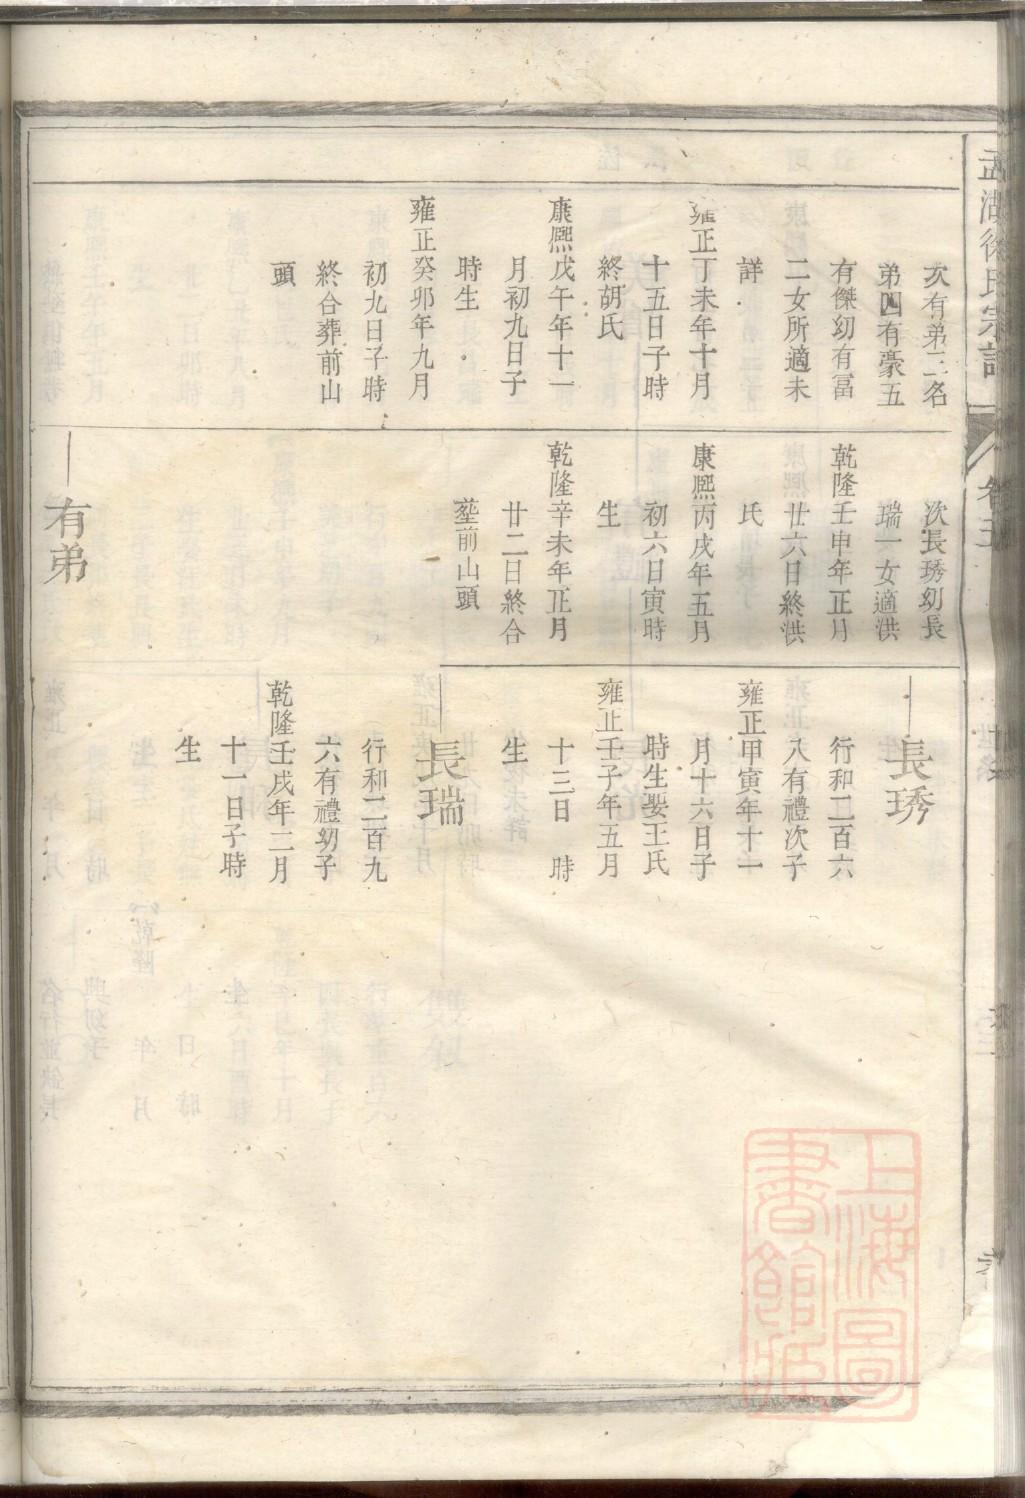 孟湖徐氏宗譜
卷五
次有弟三名
弟四有豪五
有傑幼有富
二女所適未
詳
雍正丁未年十月
十五日子時
終胡氏
康熙戊午年十一
月初九日子
時生
雍正癸卯年九月
初九日子時
終合葬前山
頭
次長琇幼長
瑞一女適洪
乾隆壬申年正月
廿六日終洪
氏
康熙丙戌年五月
初六日寅時
生
乾隆辛未年正月
廿二日終合
塟前山頭
有弟
長琇
行和二百六
八有禮次子
雍正甲寅年十一
月十六日子
時生娶王氏
雍正壬子年五月
十三日 時
生
長瑞
行和二百九
六有禮幼子
乾隆壬戌年二月
十一日子時
生
上海圖
書館藏